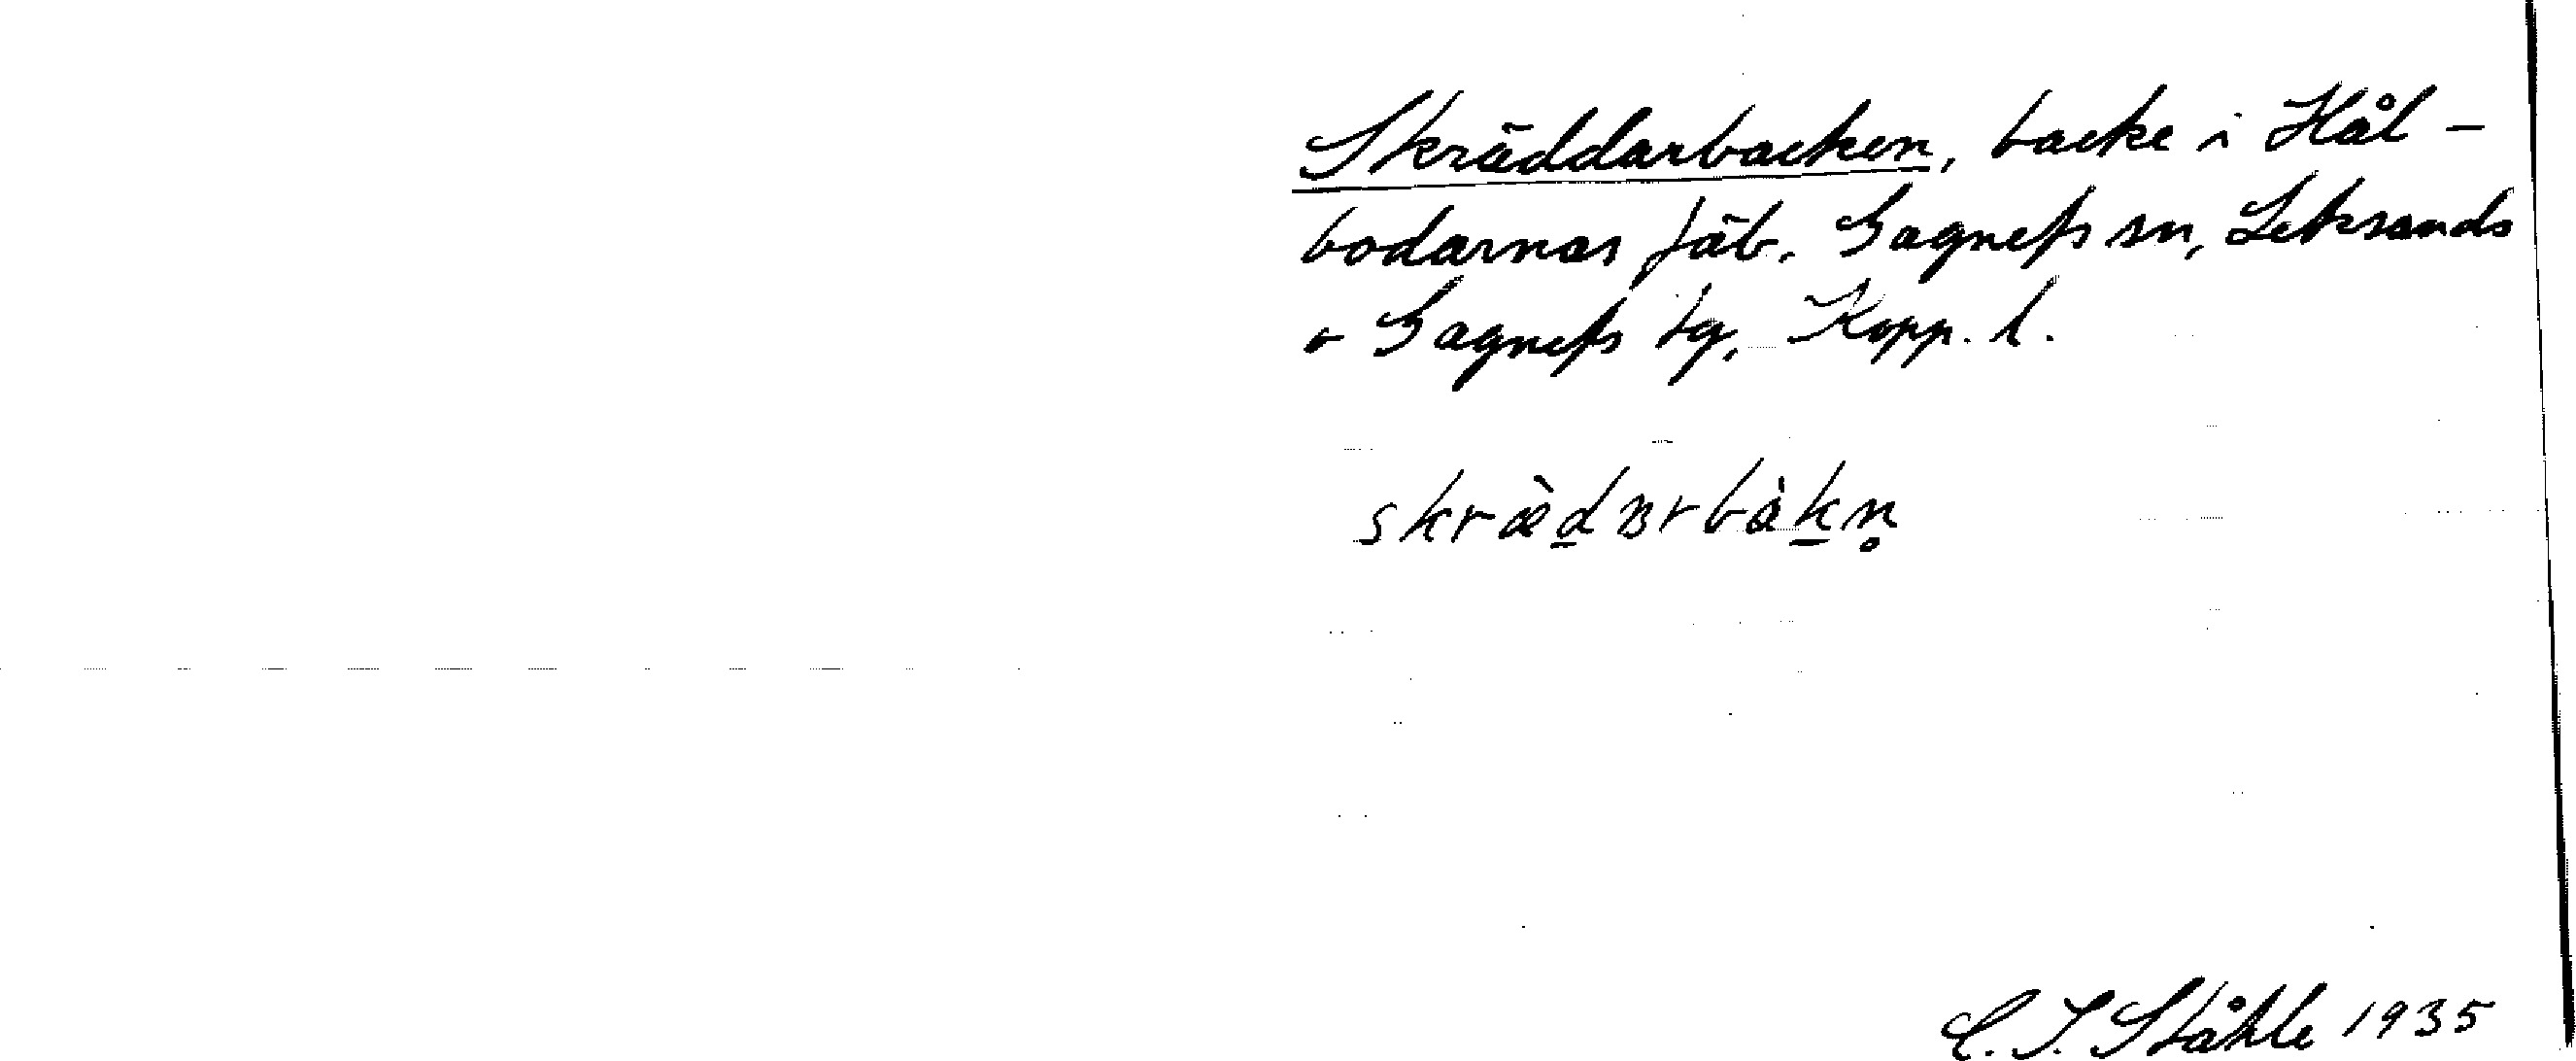 Skräddarbacken, backe i Hål-
bodarnas fäb. Gagnefs sn, Leksands
o Gagnefs tg, Kopp. l.
skræ̀d̲ɐrbàk̲n̥
C. I. Ståhle 1935